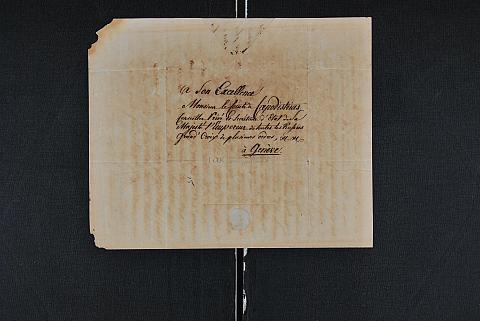 A Son Excellence
Monsieur le Comte de Capodistrias
Conseiller Privé et Secrétaire d'État de Sa
Majesté l'Empereur de toutes les Russies
Grand' Croix de plusieurs ordres, &c. &c.
à Genève.